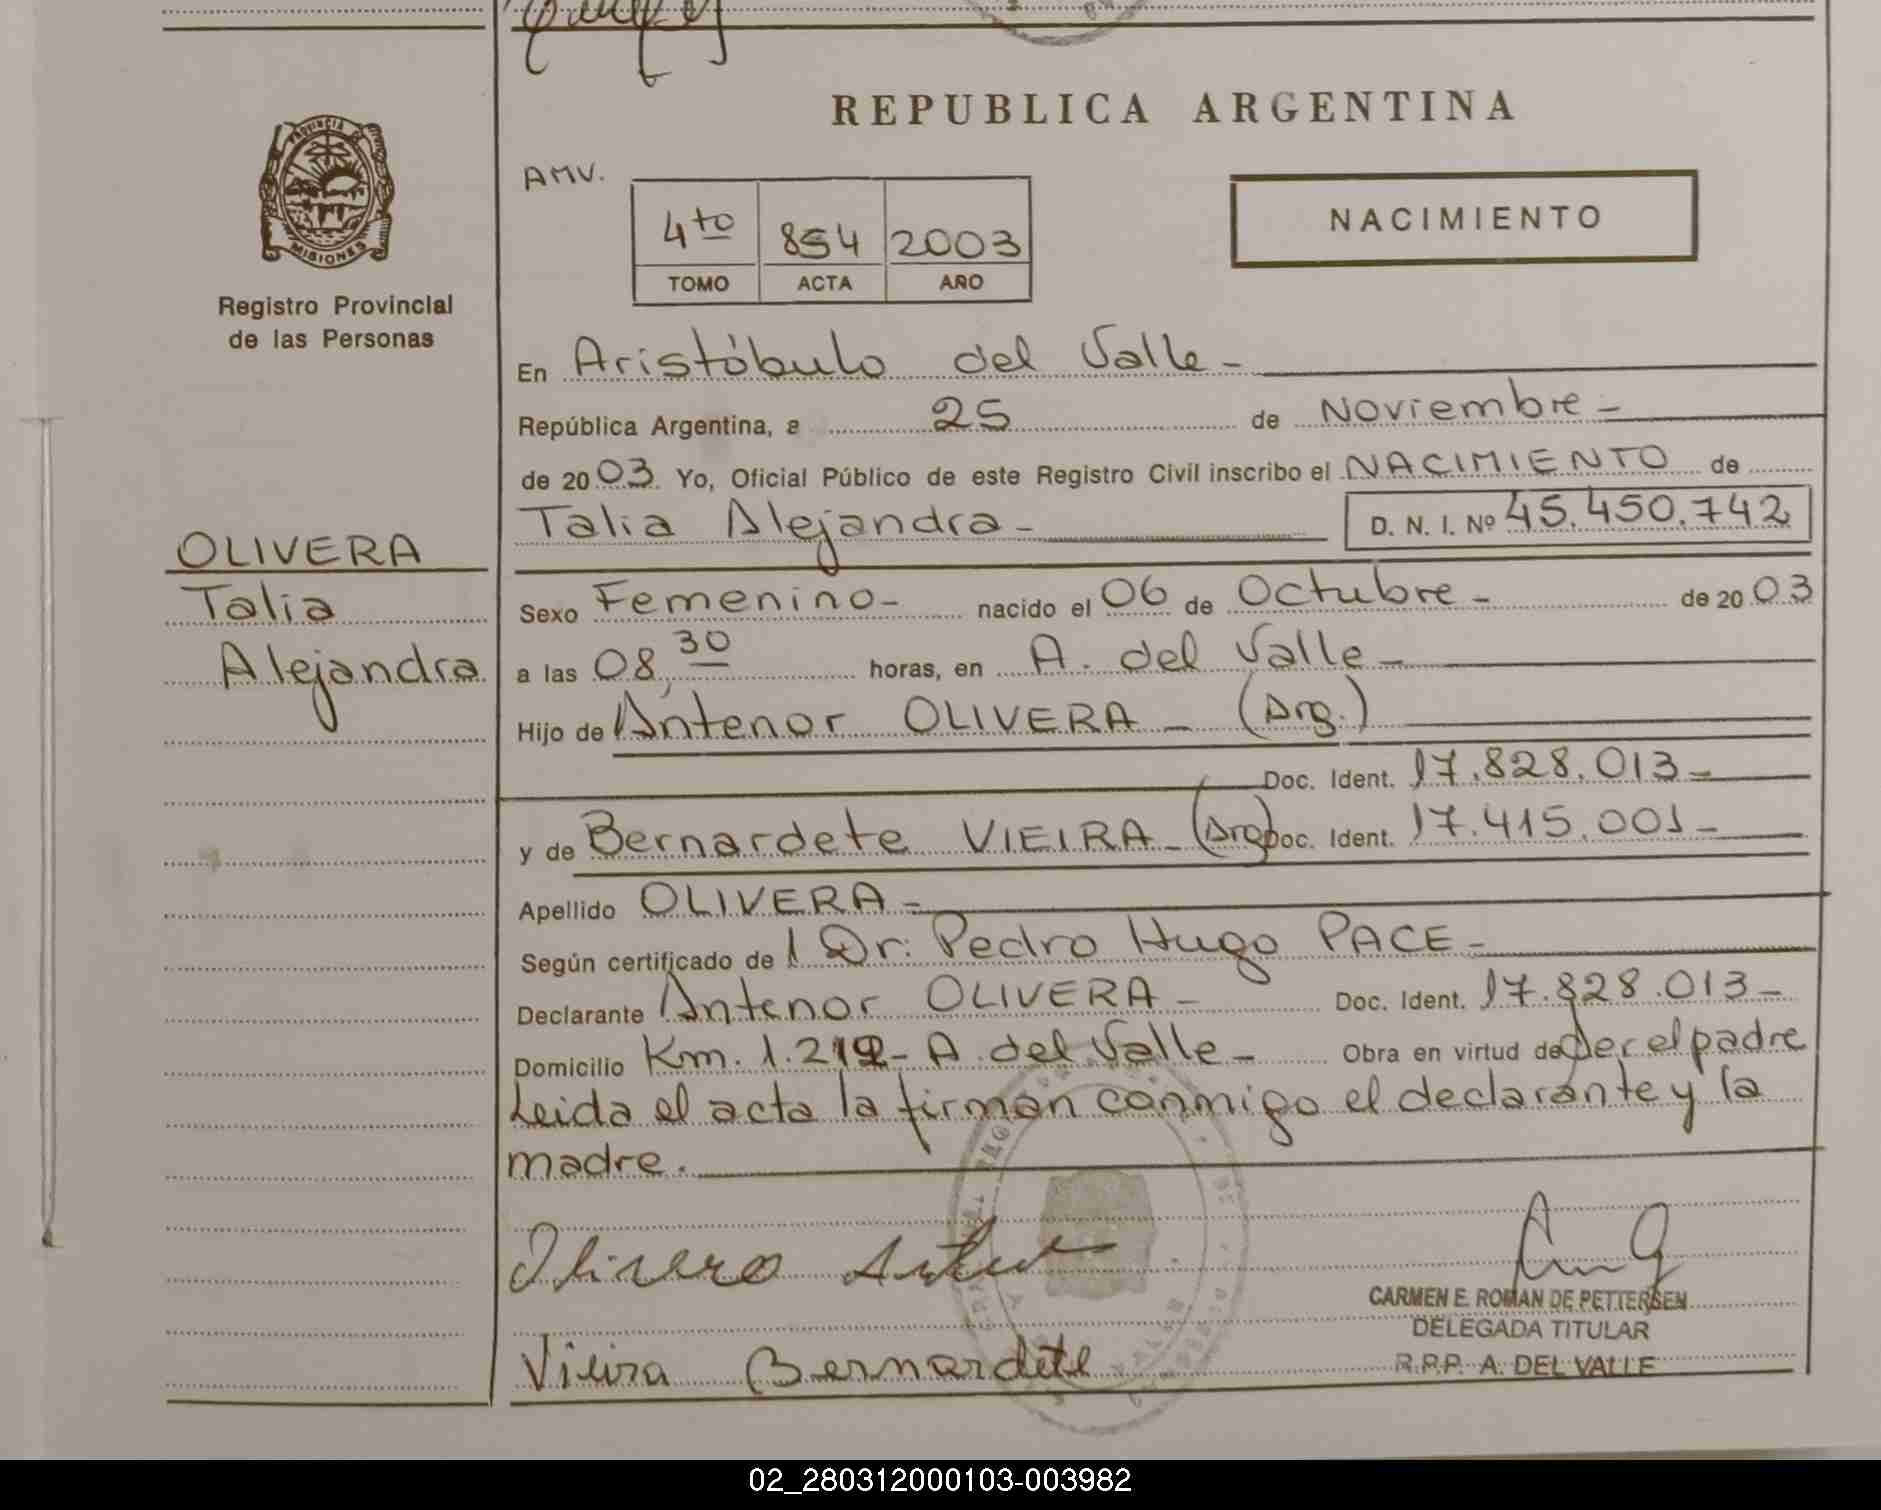 REPUBLICA ARGENTINA
PROVINCIA DE
MISIONES
Registro Provincial
de las Personas
AMV.
4to 854 2003
TOMO ACTA AÑO
NACIMIENTO
En Aristóbulo del Valle -
República Argentina, a 25 de Noviembre -
de 2003 Yo, Oficial Público de este Registro Civil inscribo el NACIMIENTO de
Talia Alejandra - D. N. I. Nº 45.450.742
OLIVERA
Talia
Alejandra
Sexo Femenino - nacido el 06 de Octubre - de 2003
a las 08,30 horas, en A. del Valle -
Hijo de Antenor OLIVERA - (Arg.)
Doc. Ident. 17.828.013 -
y de Bernardete VIEIRA - (Arg) Doc. Ident. 17.415.001 -
Apellido OLIVERA -
Según certificado de l Dr: Pedro Hugo PACE -
Declarante Antenor OLIVERA - Doc. Ident. 17.828.013 -
Domicilio Km. 1.212 - A. del Valle - Obra en virtud de ser el padre
Leida el acta la firman conmigo el declarante y la
madre.
Olivera
Vieira Bernardete
CARMEN E. ROMAN DE PETTERSEN
DELEGADA TITULAR
R.P.P. A. DEL VALLE
02_280312000103-003982